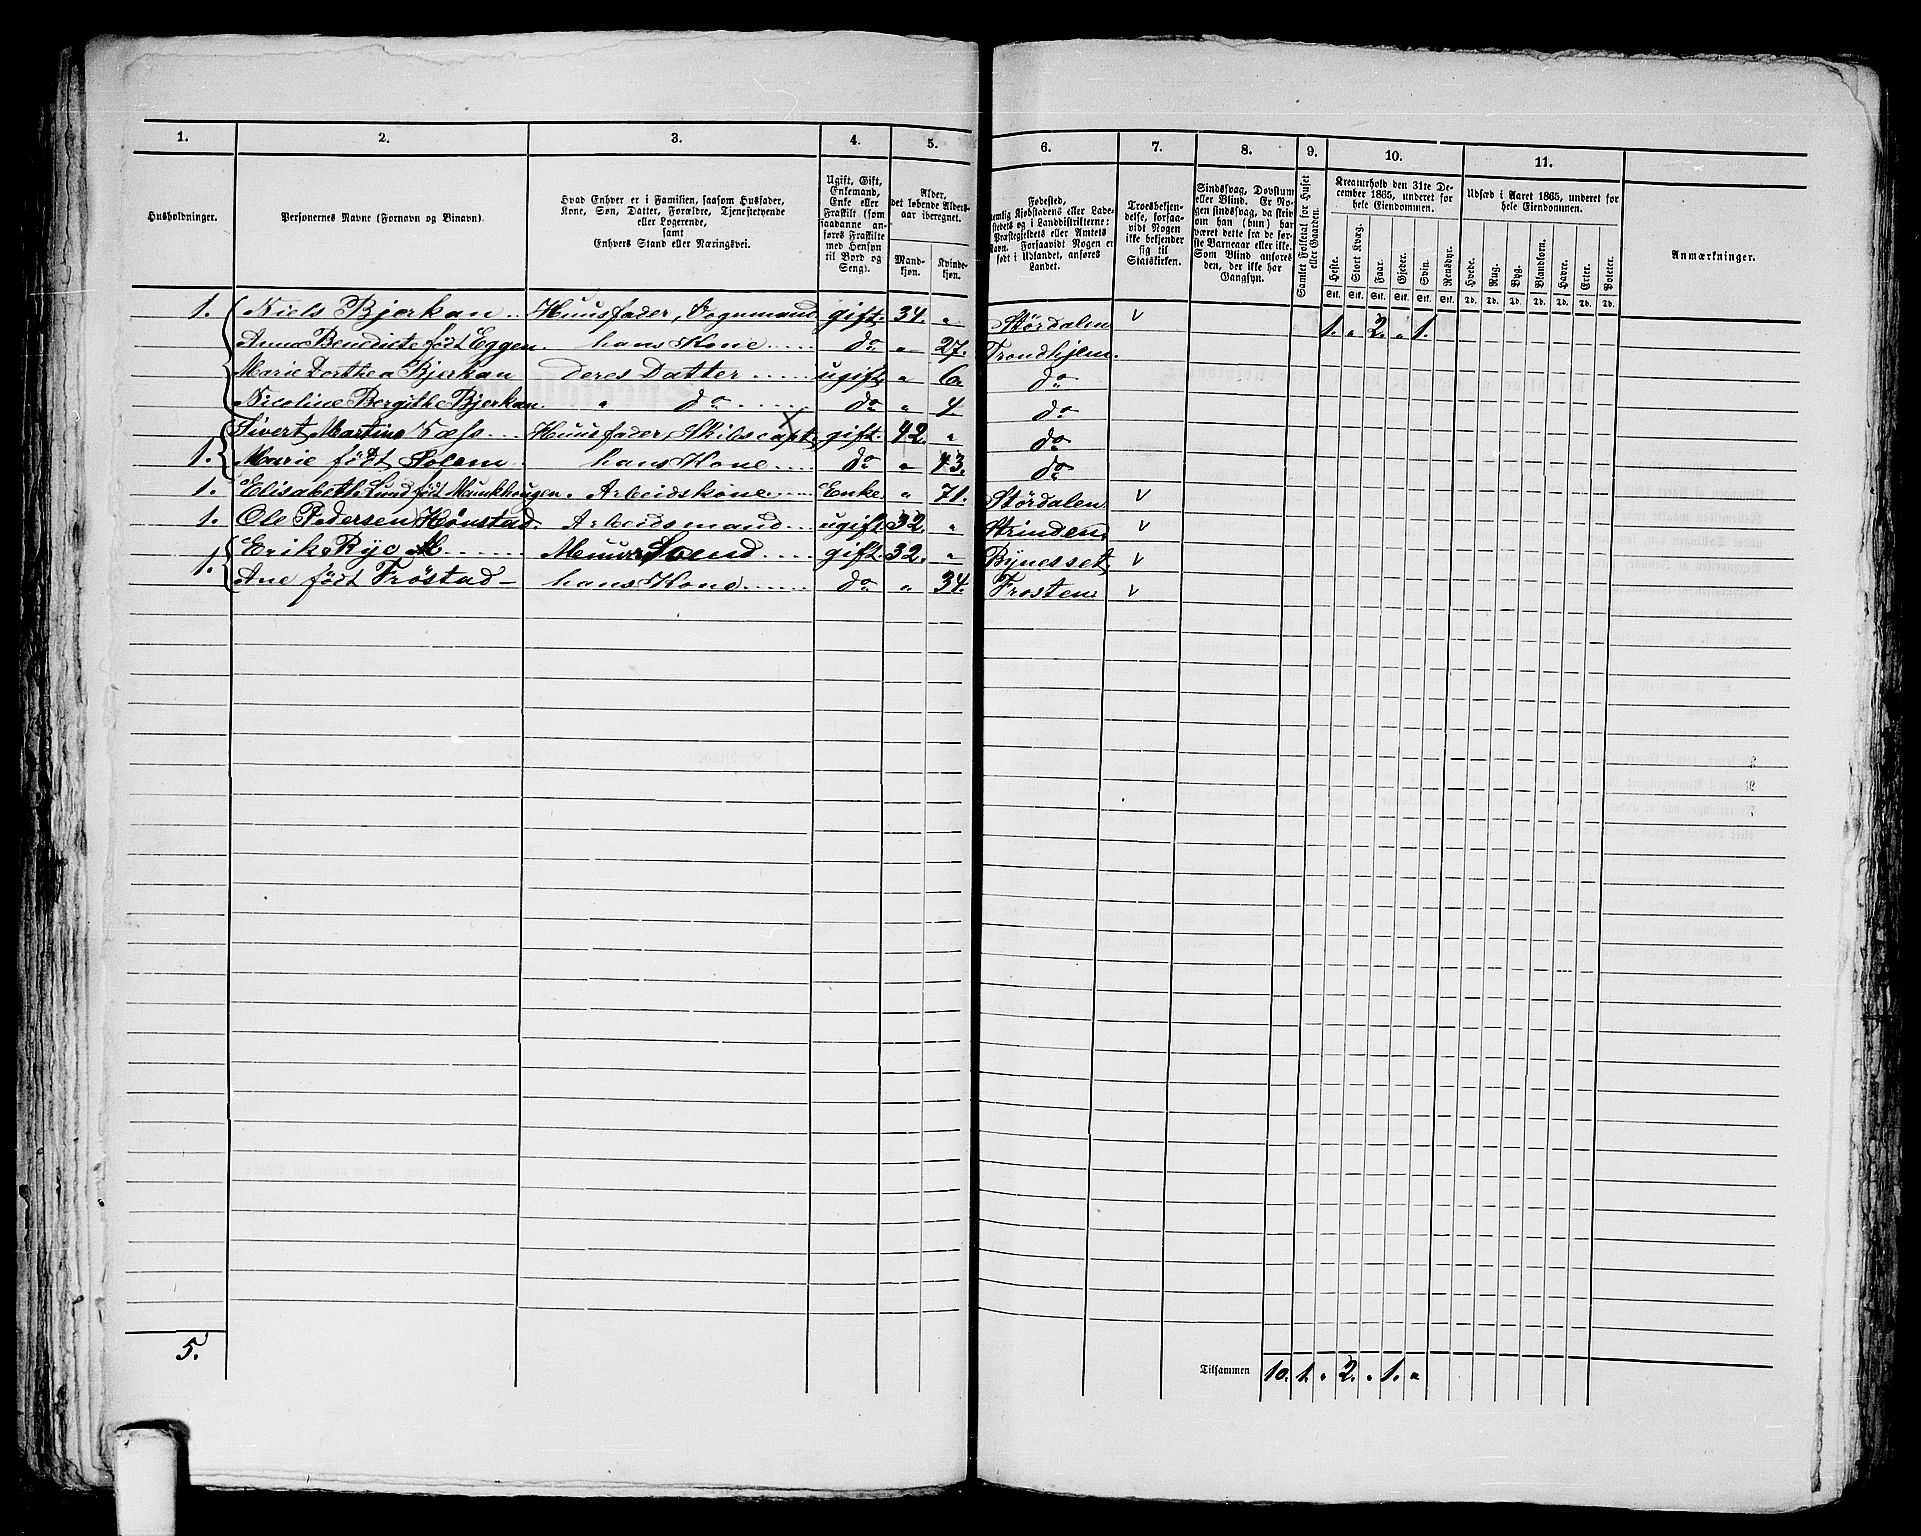 1. 2. 3. 4. 5. 6. 7. 8. 9. 10. 11.
Husholdninger.
Personernes Navne (Fornavn og Binavn).
Hvad Enhver er i Familien, saasom Husfader, Kone, Søn, Datter, Forældre, Tjenestetyende eller Logerende, samt Enhvers Stand eller Næringsvei.
Ugift, Gift, Enkemand, Enke eller Fraskilt (som saadanne anføres Fraskilte med Hensyn til Bord og Seng).
Alder, det løbende Alders-aar iberegnet.
Mandkjøn. Kvindekjøn.
Fødested,
Trosbekjendelse, forsaavidt Nogen ikke bekjender sig til Statskirken.
Sindssvag, Døvstum eller Blind. Er Nogen sindssvag, da skriv om han (hun) har været dette fra de første Barneaar eller ikke. Som Blind anføres den, der ikke har Gangsyn.
Samlet Folketal for Huset eller Gaarden.
Kreaturhold den 31te December 1865, underet for hele Eiendommen.
Heste. Stort Kvæg. Faar. Gjeder. Svin. Rensdyr.
Stk. Stk. Stk. Stk. Stk. Stk.
Udsæd i Aaret 1865, underet for hele Eiendommen.
Hvede. Rug. Byg. Blandkorn. Havre. Erter. Poteter.
Td. Td. Td. Td. Td. Td. Td.
Anmærkninger.
1. Niels Bjerkan .. Huusfader, Vognmand gift. 34. " Stördalen v 1. " 2. " 1.
Anna Benedicte født Eggen. hans Kone .... do " 27. Trondhjem.
Marie Dorthea Bjerkan deres Datter ..... ugift " 6. do
Nicoline Bergithe Bjerkan. " do ...... do " 4 do
1. Sivert Martins Næss ... Huusfader, Skibscapt. gift. 42. " do
Marie født Solem. hans Kone .... do " 43. do
1. Elisabeth Lund født Munkhougen. Arbeidskone ..... Enke " 71. Stördalen v
1. Ole Pedersen Hönstad. Arbeidsmand .. ugift 32. " Strinden. v
1. Erik Rye ...... Muur Svend .... gift. 32. " Bynesset v
Ane født Tröstad — hans Kone ...... do " 34. Frosten. v
5.
Tilsammen 10. 1. " 2. " 1. "